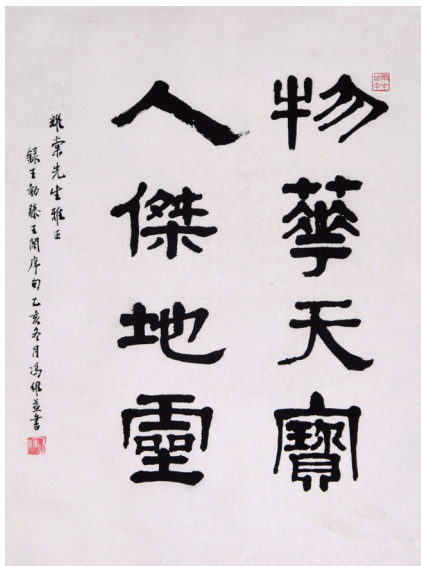 物華天寶
人傑地靈
耀棠先生雅正
錄王勃滕王閣序句乙亥冬月馮維益書